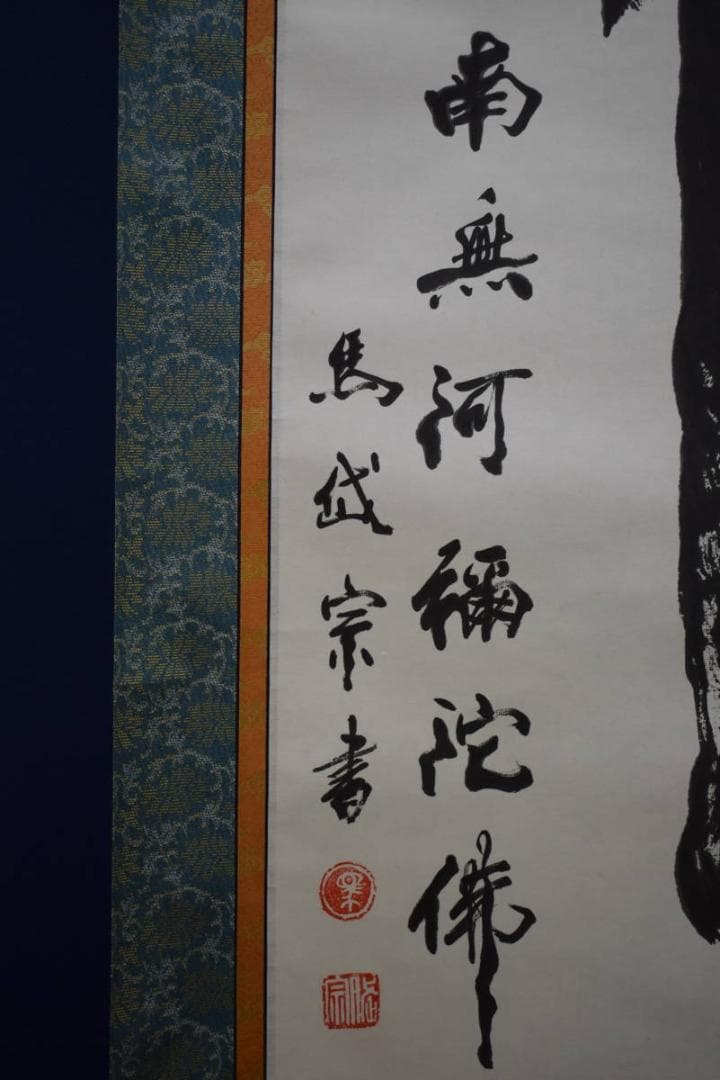 南無阿彌陀佛
馬岱宗書